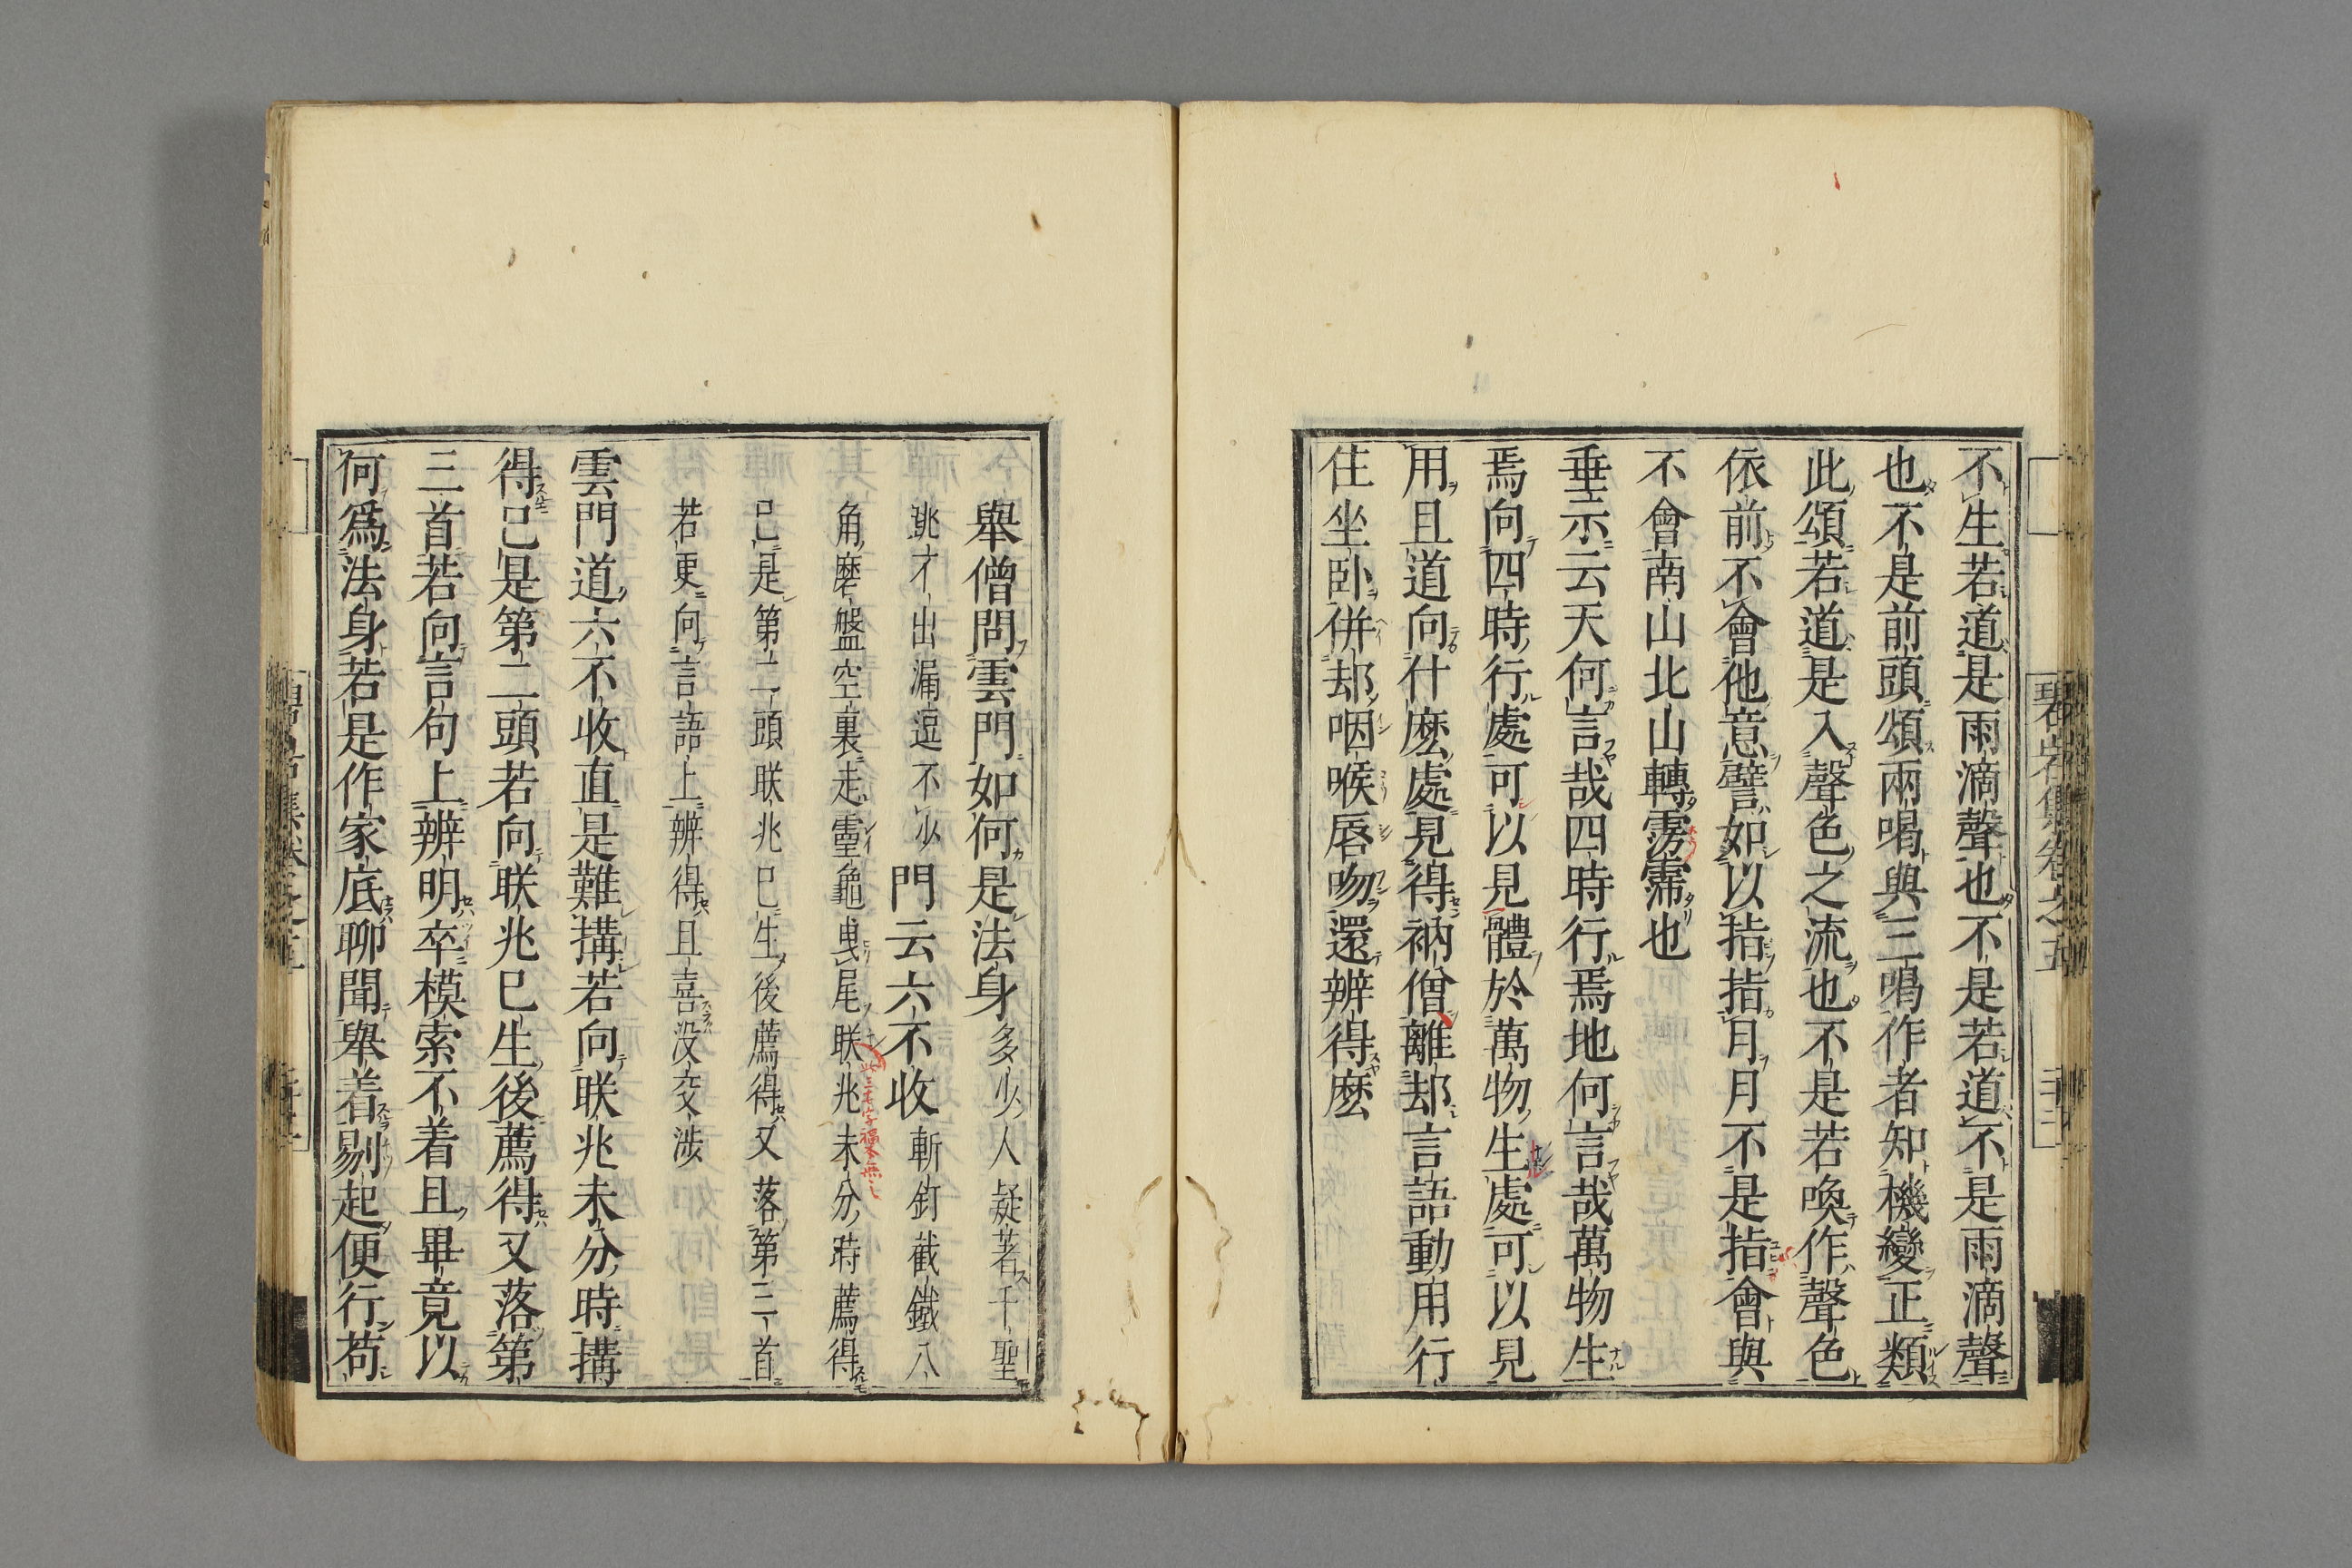 不生若道是雨滴聲也不是若道不是雨滴聲
也不是前頭頌兩喝與三喝作者知機變正類
此頌若道是入聲色之流也不是若喚作聲色
依前不會他意譬如以指指月月不是指會與
不會南山北山轉霶霈也
垂示云天何言哉四時行焉地何言哉萬物生
焉向四時行處可以見體於萬物生處可以見
用且道向什麽處見得衲僧離却言語動用行
住坐卧併却咽喉唇吻還辨得麽
碧岩集卷之五
舉僧問雲門如何是法身多少人疑著千聖
跳不出漏逗不少門云六不收斬釘截鐵八
角磨盤空裏走靈龜曳尾朕兆未分時薦得
已是第二頭朕兆已生後薦得又落第三首
若更向言語上辨得且喜没交渉
雲門道六不收直是難搆若向朕兆未分時搆
得已是第二頭若向朕兆已生後薦得又落第
三首若向言句上辨明卒模索不着且畢竟以
何爲法身若是作家底聊聞舉着剔起便行苟